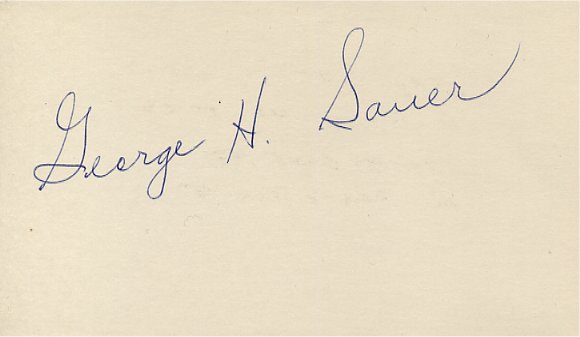 George H. Sauer